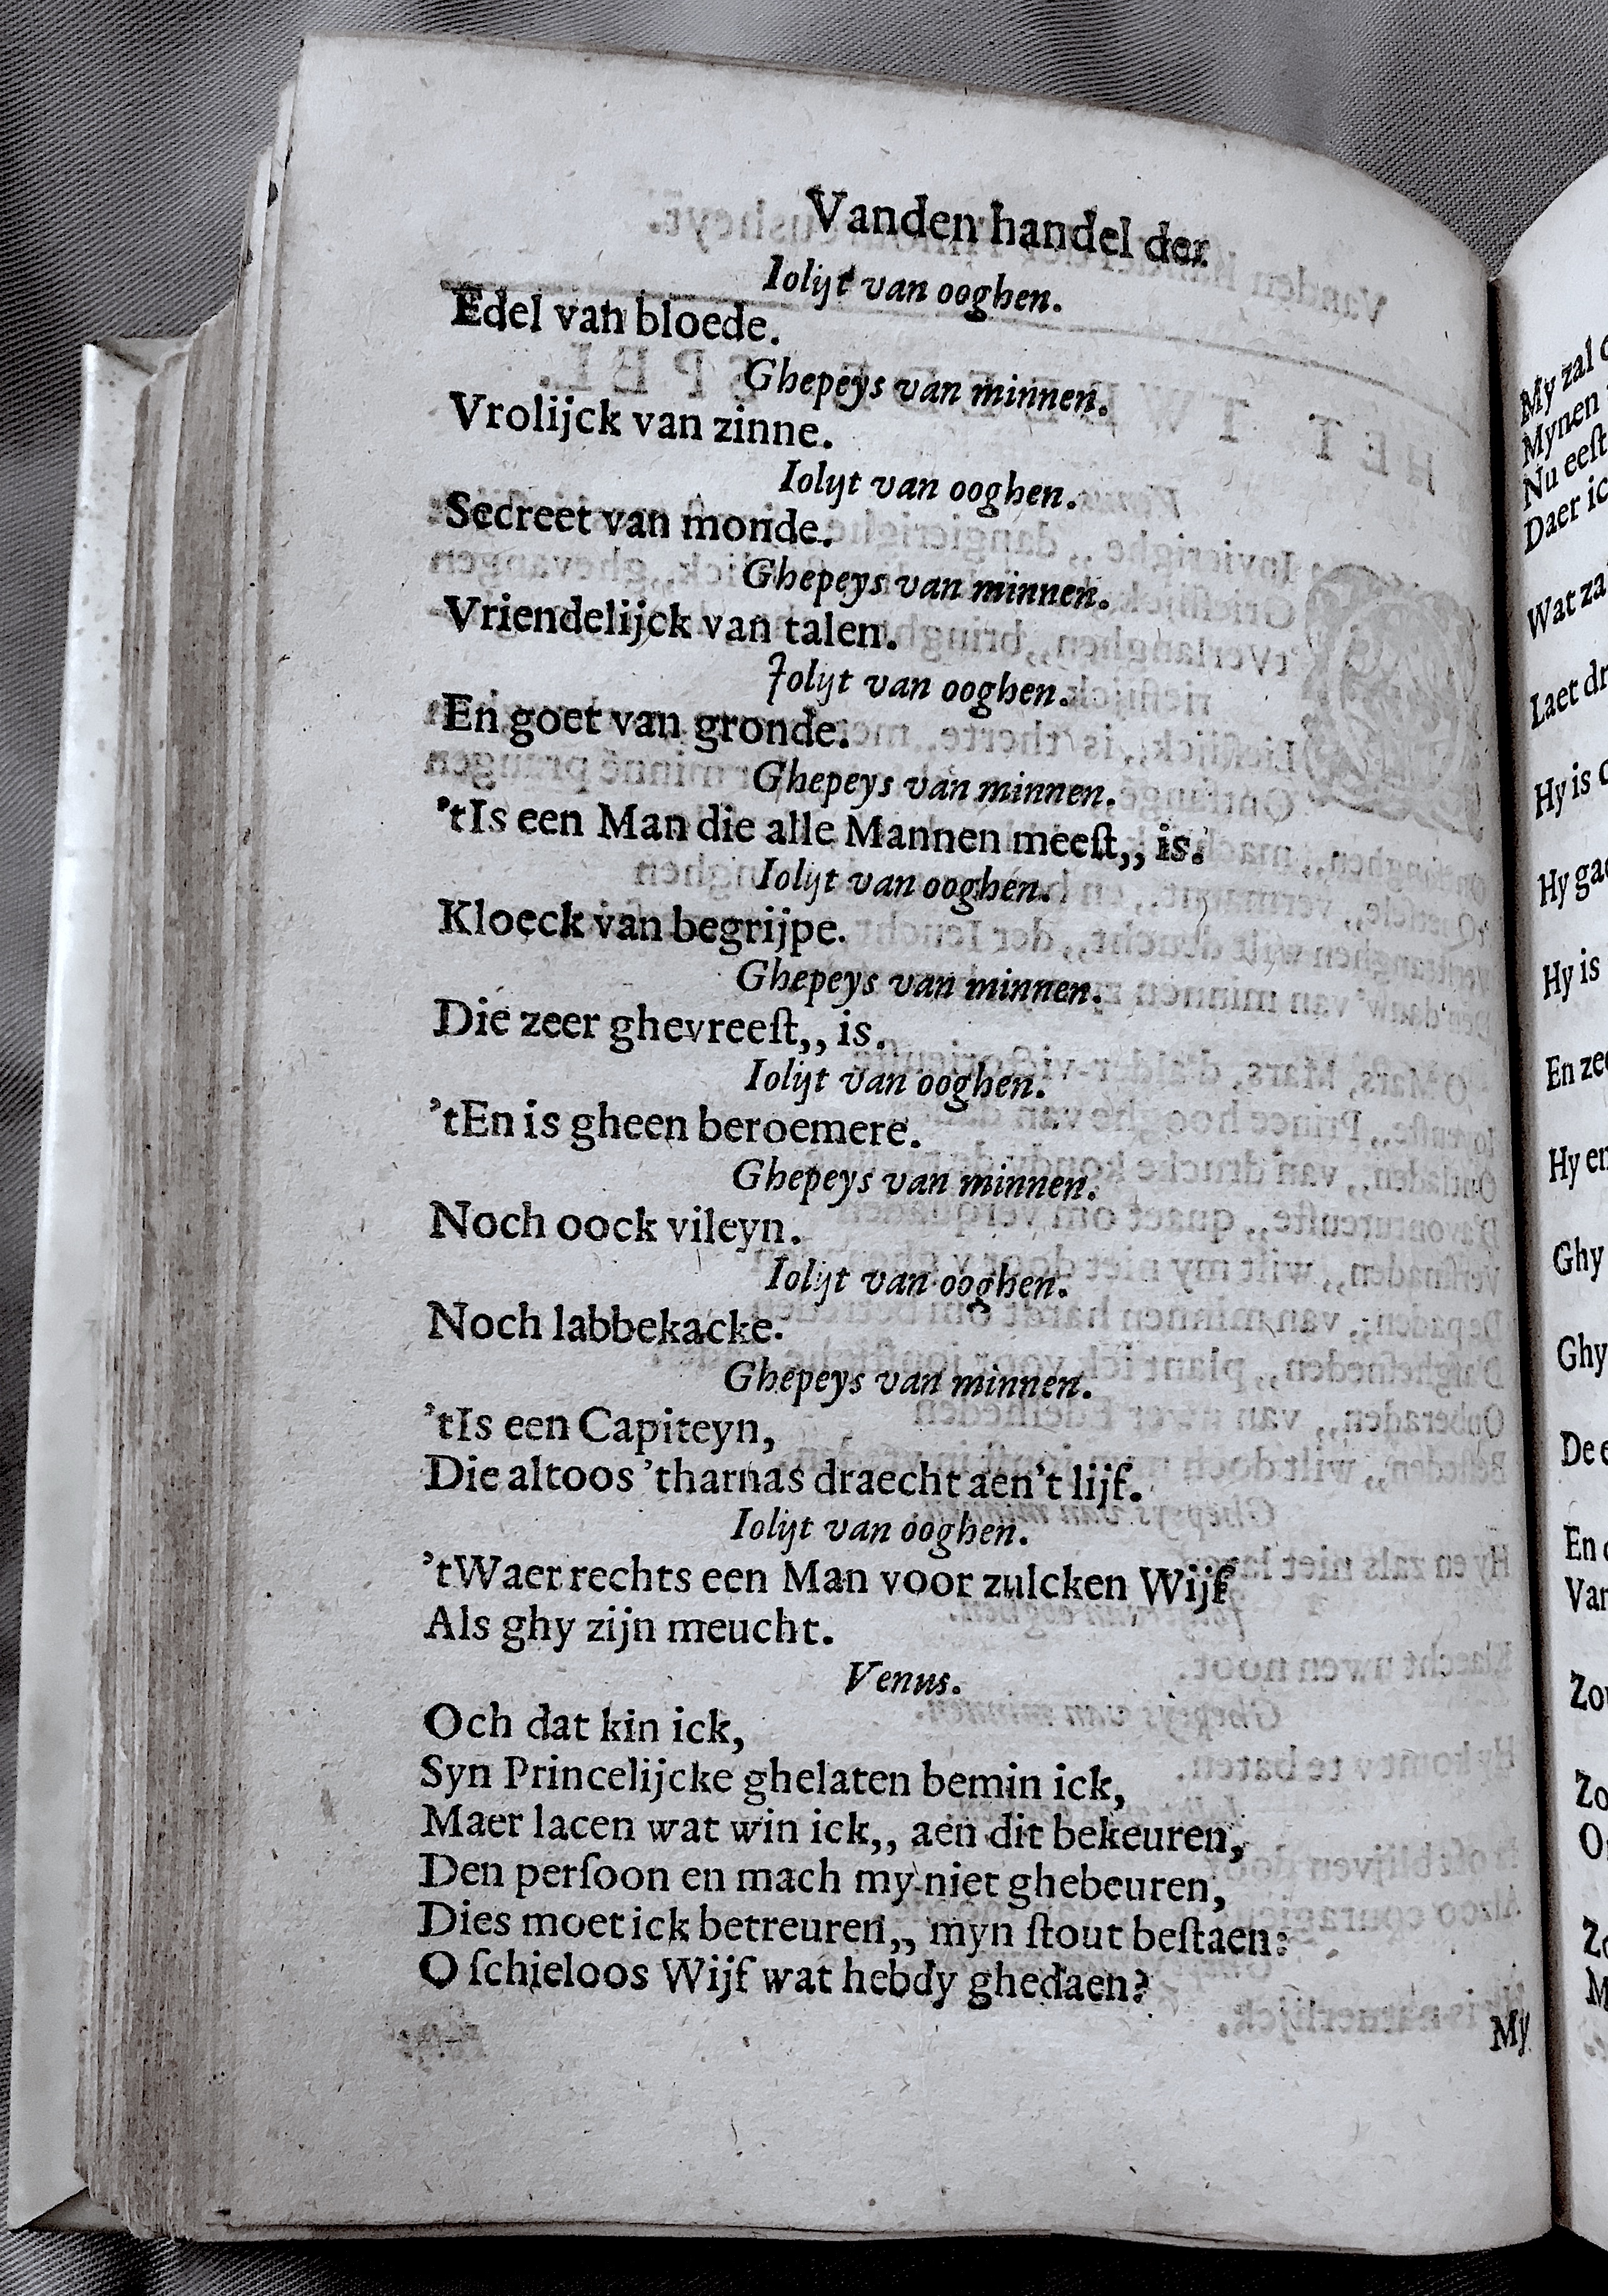 Vanden handel der
Iolijt van ooghen.
Edel van bloede.
Ghepeys van minnen.
Vrolijck van zinne.
Iolijt van ooghen.
Secreet van monde.
Ghepeys van minnen.
Vriendelijck van talen.
Jolijt van ooghen.
En goet van gronde.
Ghepeys van minnen.
'tIs een Man die alle Mannen meeſt,, is.
Iolijt van ooghen.
Kloeck van begrijpe.
Ghepeys van minnen.
Die zeer ghevreeſt,, is.
Iolijt van ooghen.
'tEn is gheen beroemere.
Ghepeys van minnen.
Noch oock vileyn.
Iolijt van ooghen.
Noch labbekacke.
Ghepeys van minnen.
'tIs een Capiteyn,
Die altoos 'tharnas draecht aen't lijf.
Iolijt van ooghen.
'tWaer rechts een Man voor zulcken Wijf
Als ghy zijn meucht.
Venus.
Och dat kin ick,
Syn Princelijcke ghelaten bemin ick,
Maer lacen wat win ick,, aen dit bekeuren,
Den perſoon en mach my niet ghebeuren,
Dies moet ick betreuren,, myn ſtout beſtaen:
O ſchieloos Wijf wat hebdy ghedaen?
My
My zal
Mynen
Nu eeſt
Daer ic
Wat za
Laet dr
Hy is
Hy gae
Hy is
En zee
Hy en
Ghy
Ghy
De
En
Van